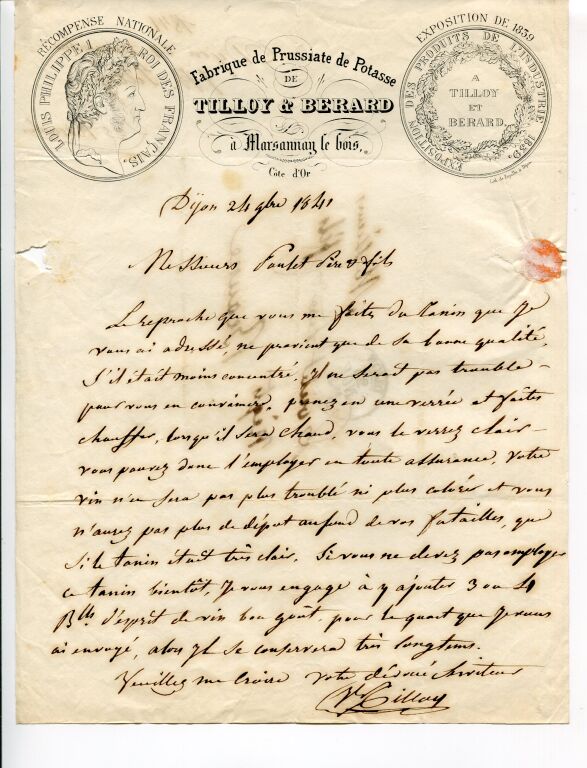 RÉCOMPENSE NATIONALE
LOUIS PHILIPPE I ROI DES FRANÇAIS.
Fabrique de Prussiate de Potasse
DE
TILLOY & BERARD
à Marsannay le bois,
Côte d'Or
EXPOSITION DE 1839
EXPOSITION DES PRODUITS DE L'INDUSTRIE 1839.
A
TILLOY
ET
BERARD.
Dijon 24 9bre 1841
Messieurs Poulet Père & fils
Le reproche que vous me faites du Tanin que Je
vous ai adressé, ne provient que de sa bonne qualité,
S'il était moins concentré, Il ne serait pas trouble –
pour vous en convaincre, prenez en une verrée et faites
chauffer, lorsqu'il sera chaud, vous le verrez clair –
vous pouvez donc l'employer en toute assurance, votre
vin n'en sera pas plus troublé ni plus coloré et vous
n'aurez pas plus de dépot au fond de vos futailles, que
si le tanin était très clair. Si vous ne devez pas employer
ce tanin bientôt, Je vous engage à y ajouter 3 ou 4
Blles d'esprit de vin bon goût, pour le quart que Je vous
ai envoyé, alors Il se conservera très longtems.
Veuillez me croire votre dévoué Serviteur
Tilloy